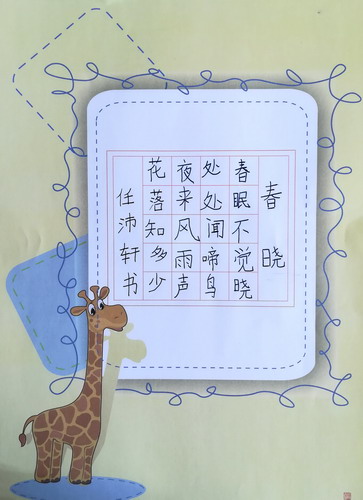 春晓
春眠不觉晓
处处闻啼鸟
夜来风雨声
花落知多少
任沛轩书